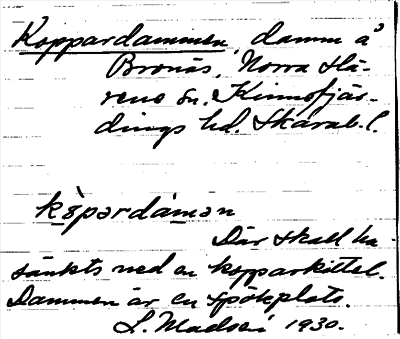 Koppardammen, damm å
Bronäs, Norra Hä-
rene sn. Kinnefjär-
dings hd. Skarab. l.
kǫ̀pardámən
Där skall ha
sänkts ned en kopparkittel.
Dammen är en spökplats.
L. Madsén 1930.